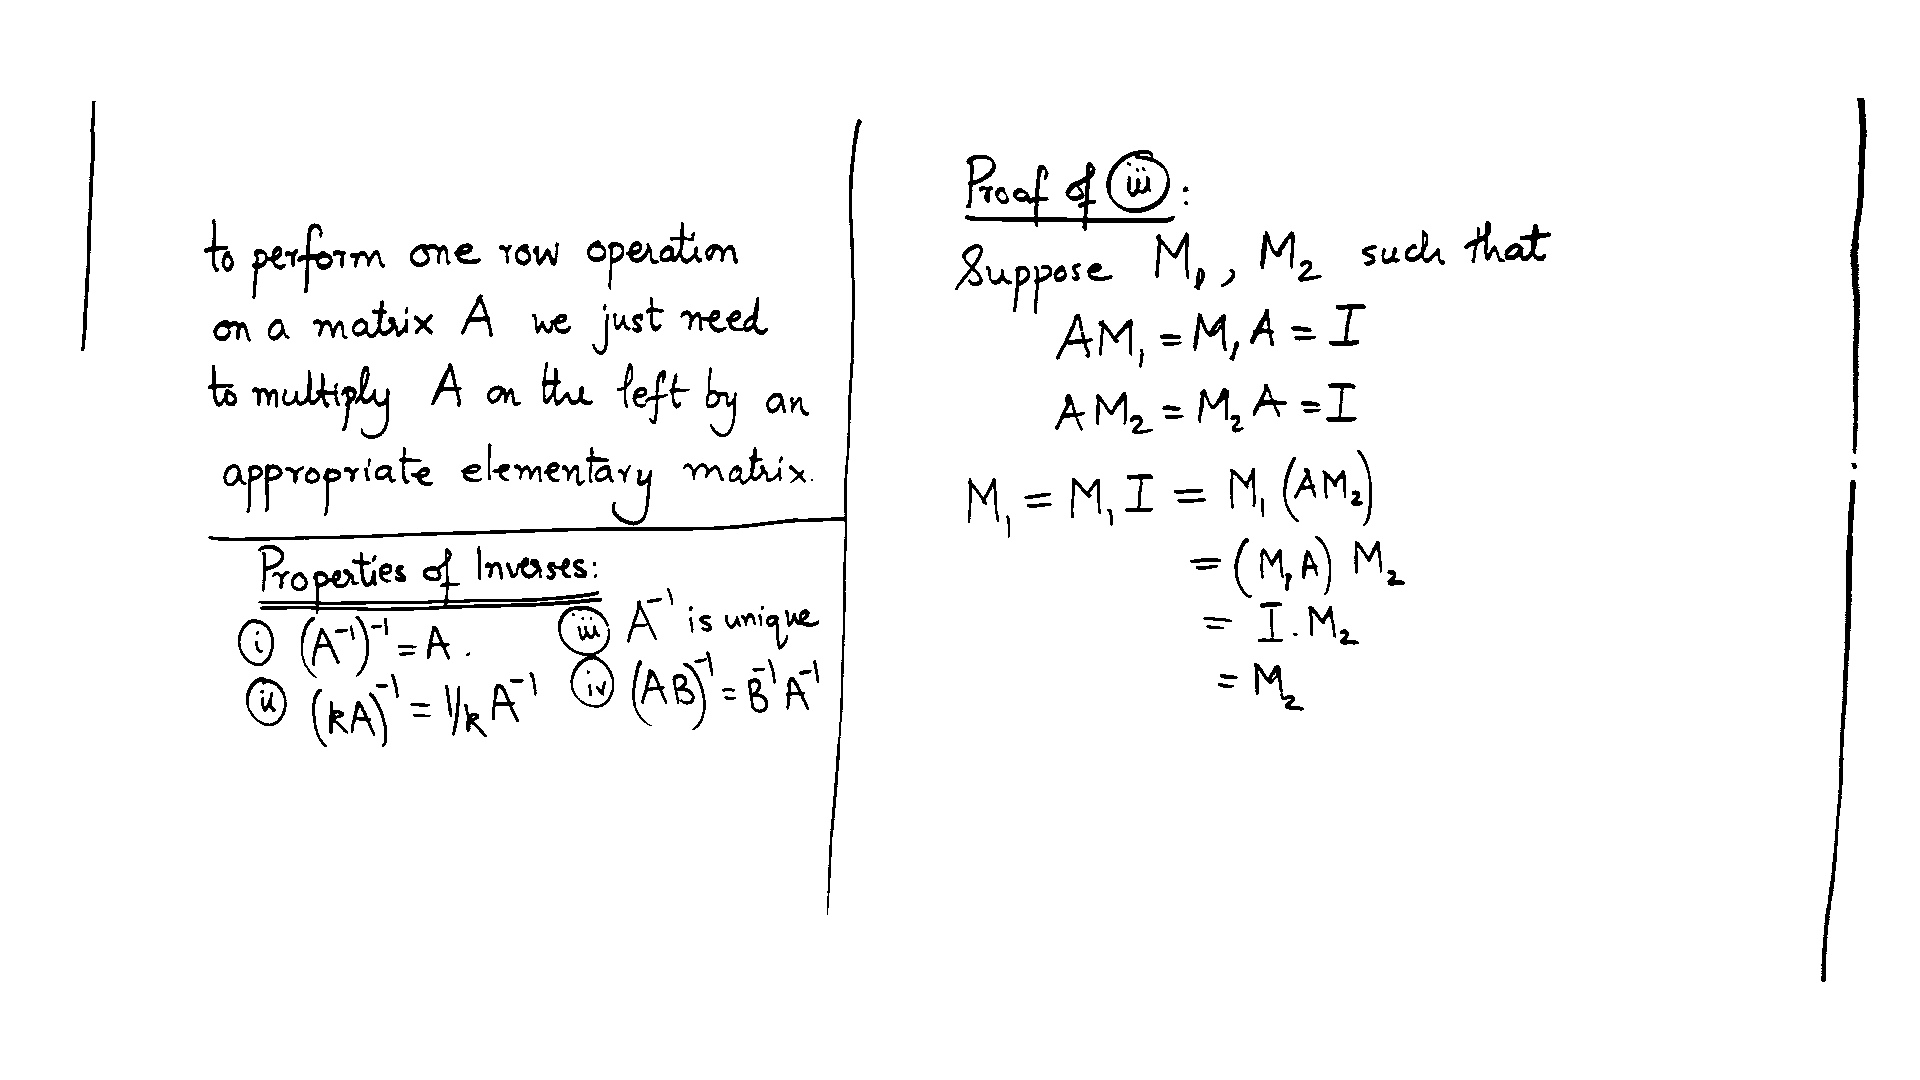 to perform one row operation
on a matrix A we just need
to multiply A on the left by an
appropriate elementary matrix.
Properties of Inverses:
(i) (A⁻¹)⁻¹ = A.
(ii) (kA)⁻¹ = 1/k A⁻¹
(iii) A⁻¹ is unique
(iv) (AB)⁻¹ = B⁻¹ A⁻¹
Proof of (iii):
Suppose M₁, M₂ such that
AM₁ = M₁A = I
AM₂ = M₂A = I
M₁ = M₁I = M₁(AM₂)
= (M₁A) M₂
= I.M₂
= M₂